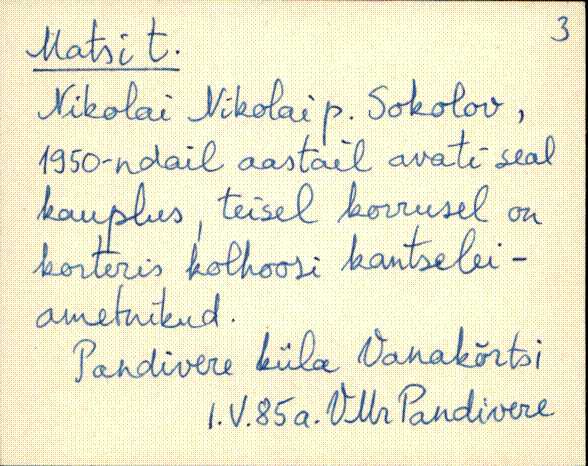 3
Matsi t.
Nikolai Nikolai p. Sokolov,
1950-ndail aastail avati seal
kauplus, teisel korrusel on
korteris kolhoosi kantselei-
ametnikud.
Pandivere küla Vanakõrtsi
1.V.85a. VMr Pandivere